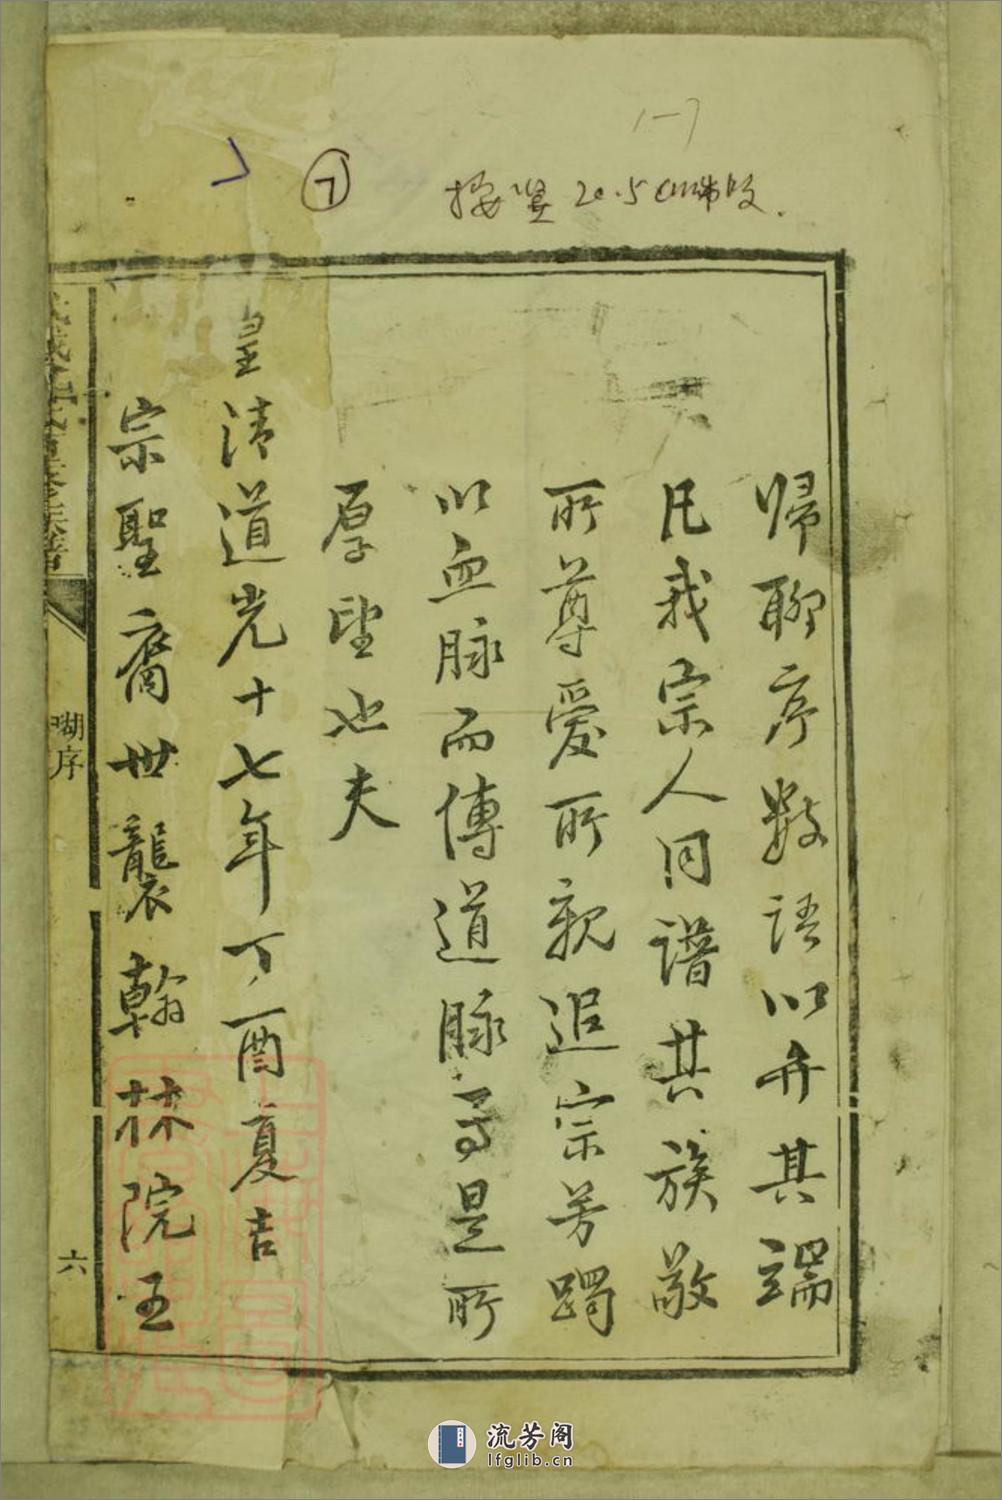 1-7
⑦
歸聊序數語以弁其端
凡我宗人同譜共族敬
所尊愛所親追宗芳躅
以血脉而傳道脉焉是所
厚望也夫
皇清道光十七年丁酉夏吉
宗聖裔世襲翰林院五
武城曾氏重修族譜
序
六
流芳阁
lfglib.cn